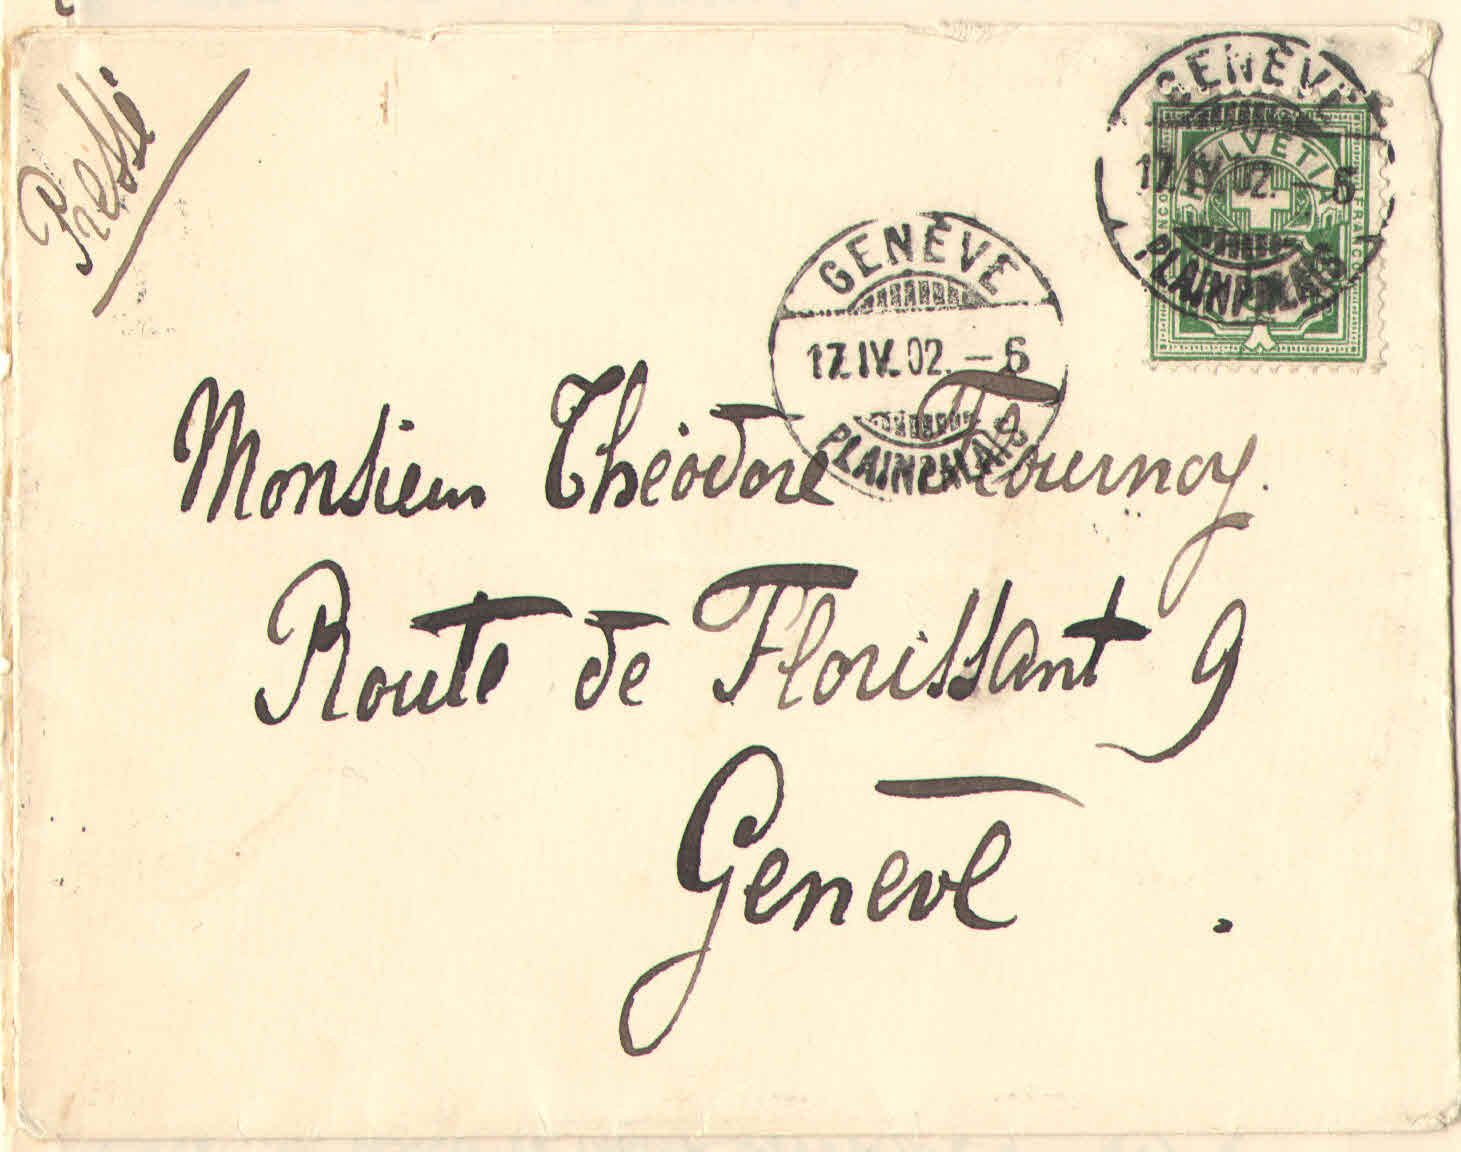 Pressé
GENÈVE
17.IV.02.–6
PLAINPALAIS
HELVETIA
FRANCO
GENÈVE
17.IV.02.–6
PLAINPALAIS
Monsieur Théodore Flournoy.
Route de Florissant 9
Genève